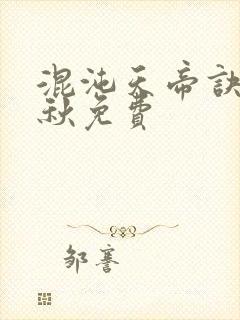 混沌天帝訣
秋免費
鄒謇